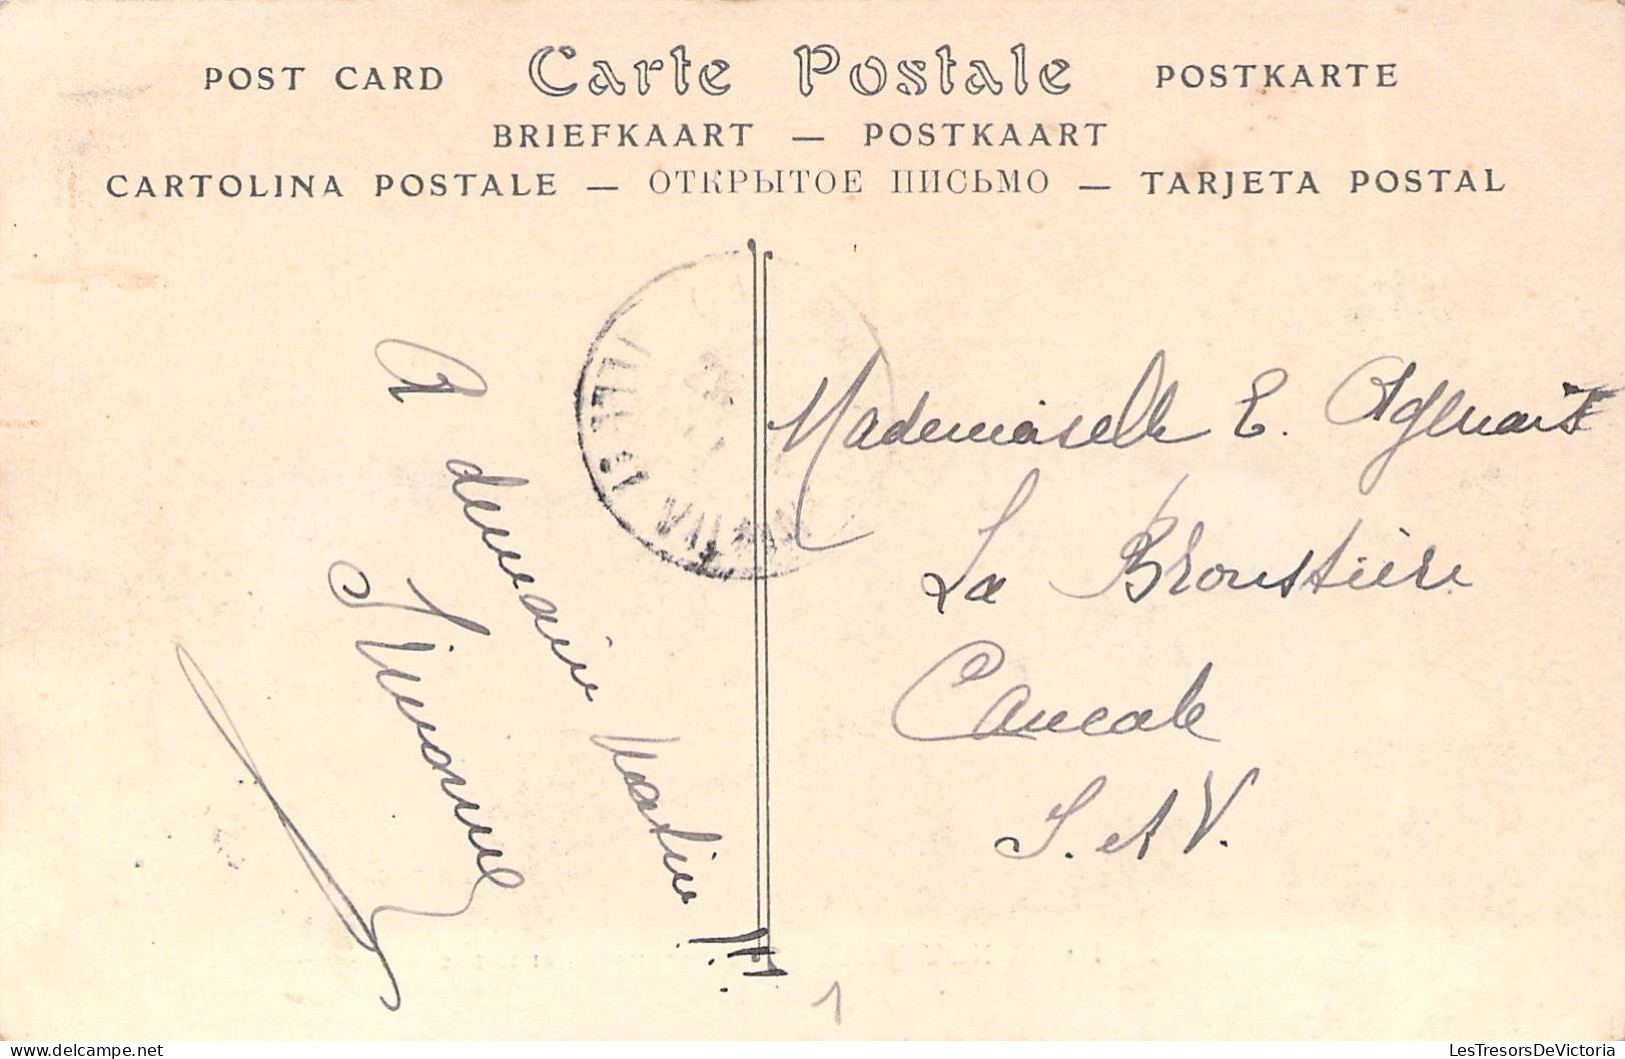 POST CARD Carte Postale POSTKARTE
BRIEFKAART — POSTKAART
CARTOLINA POSTALE — ОТКРЫТОЕ ПИСЬМО — TARJETA POSTAL
A demain matin !!!
Simonne
Mademoiselle E.
La Broustière
Cancale
I. et V.
ILLE ET VILAINE
1
LesTresorsDeVictoria